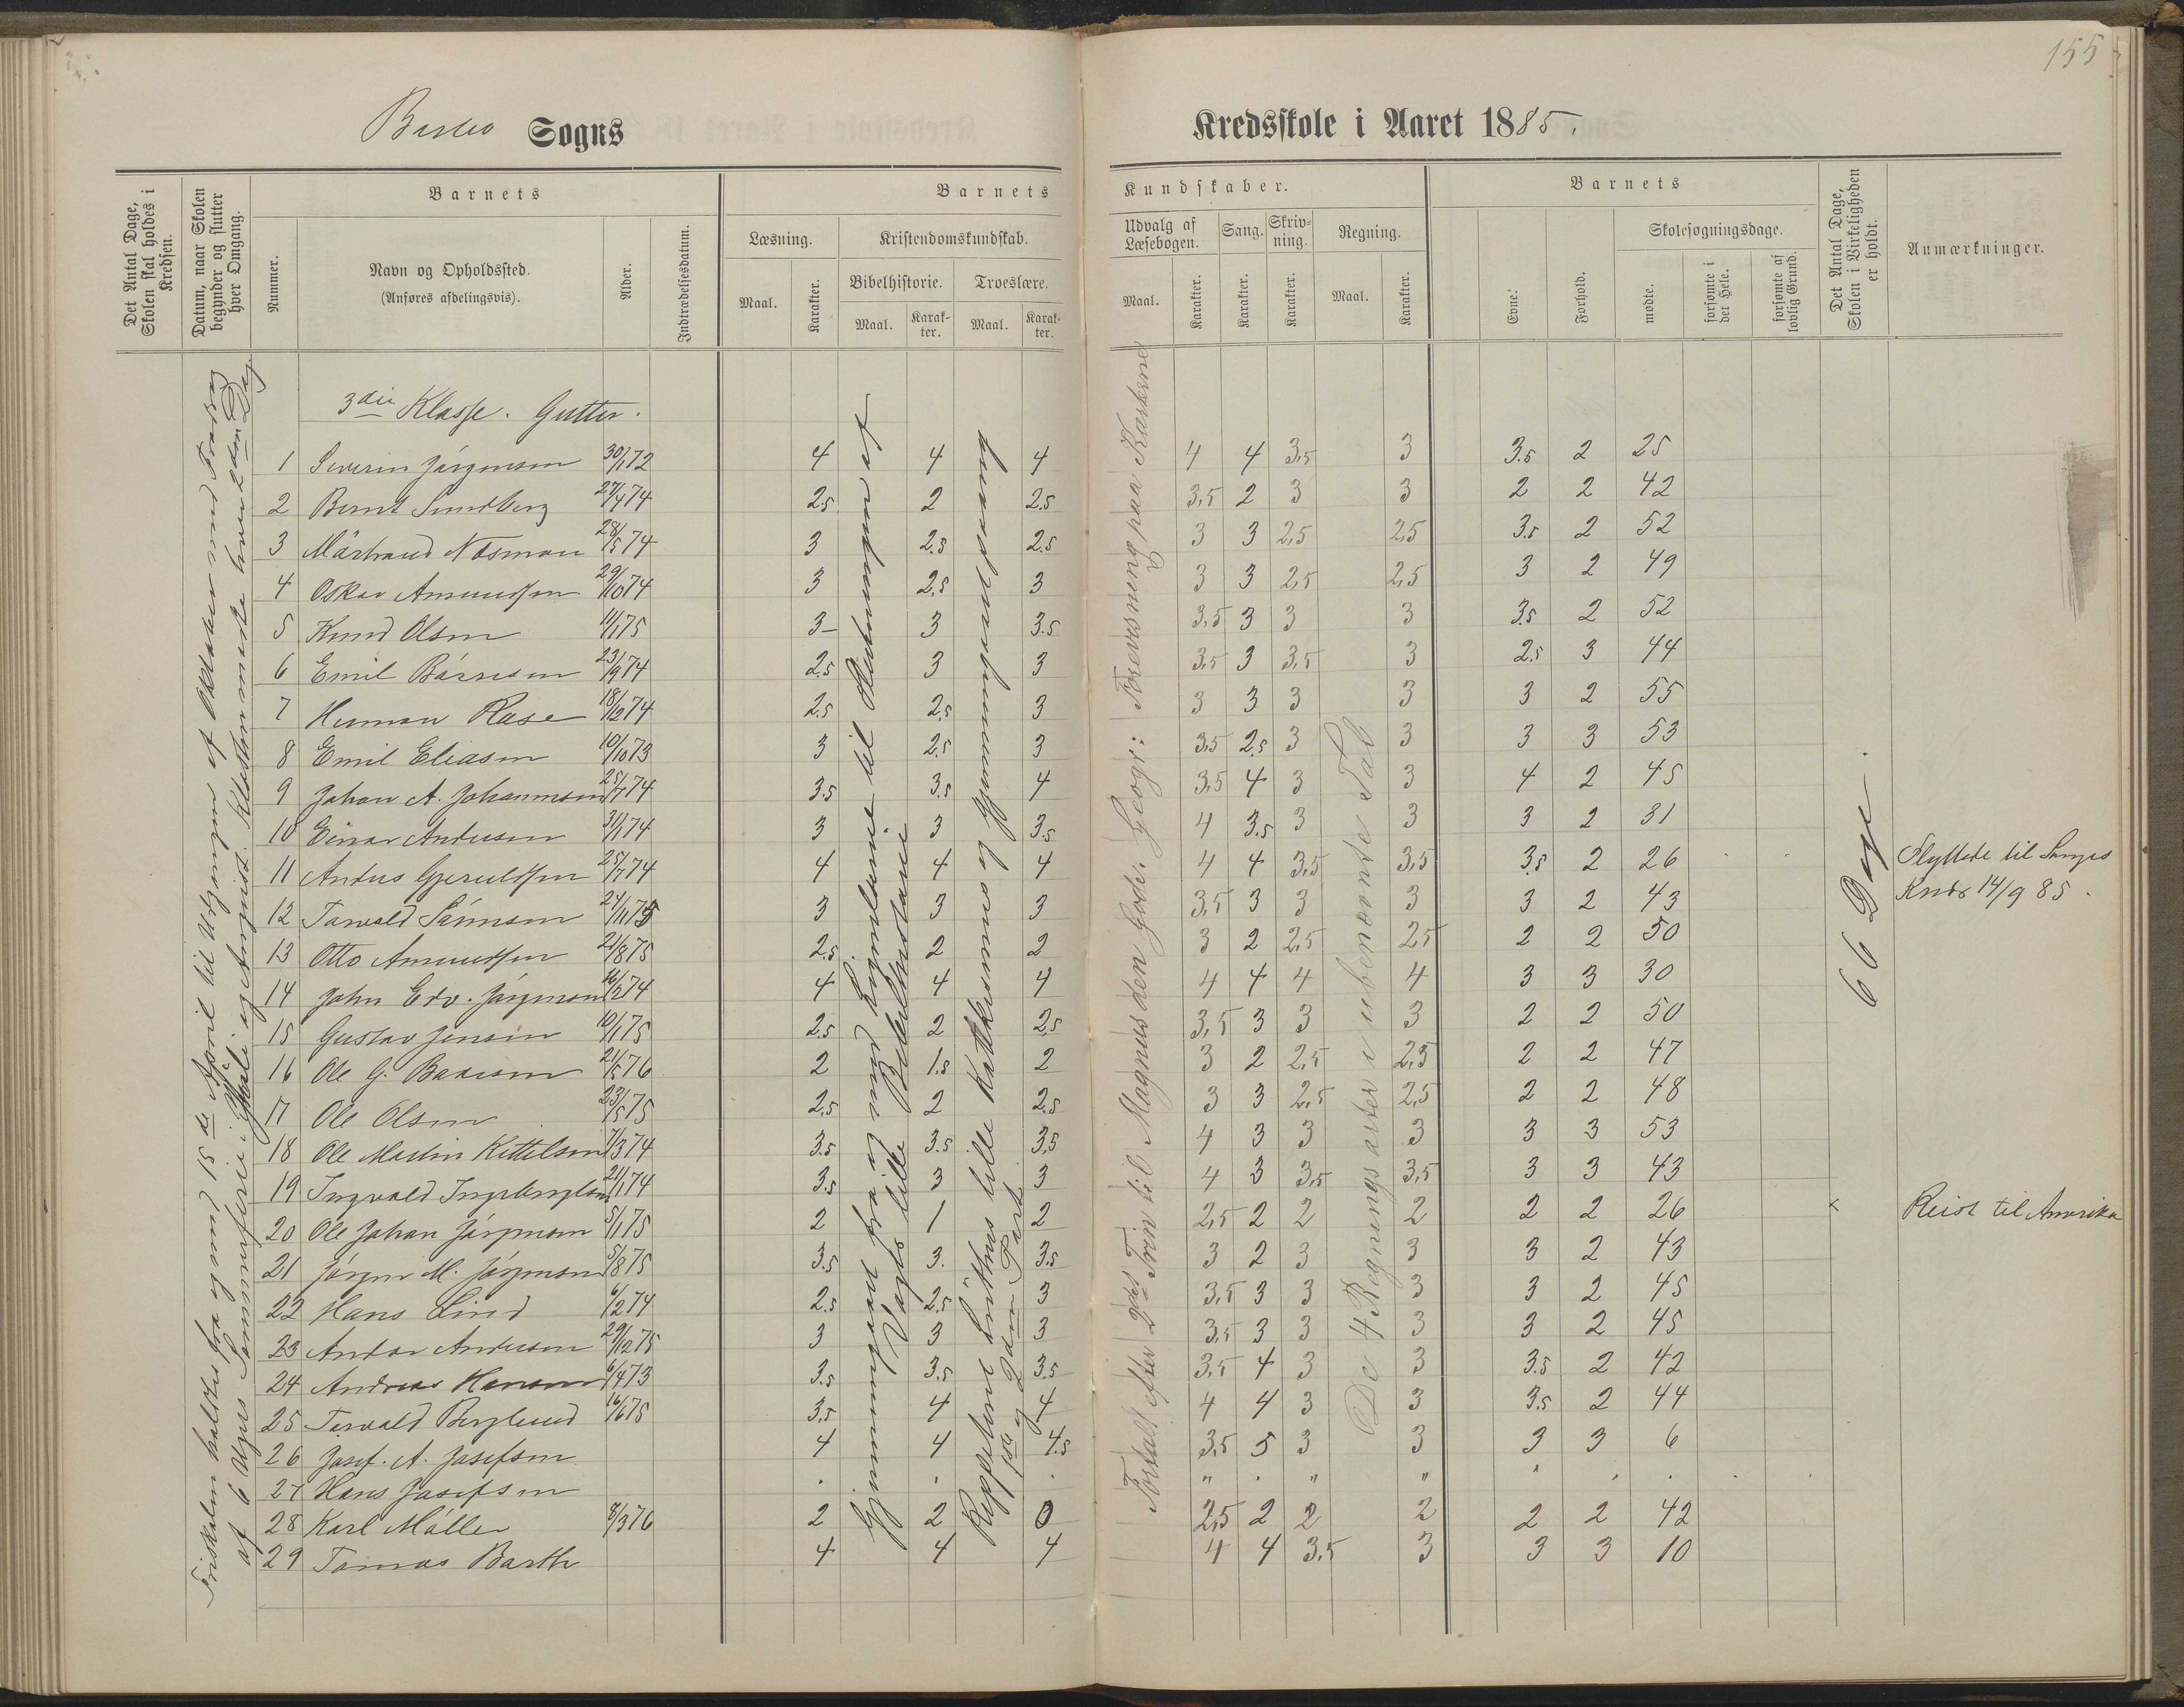 155
Barbo Sogns
Kredsskole i Aaret 1885.
Det Antal Dage, Skolen skal holdes i Kredsen.
Datum, naar Skolen begynder og slutter hver Omgang.
Barnets
Nummer.
Navn og Opholdssted.
(Anføres afdelingsvis).
Alder.
Indtrædelsesdatum.
Barnets
Kundskaber.
Læsning.
Maal.
Karakter.
Kristendomskundskab.
Bibelhistorie.
Maal.
Karak-ter.
Troeslære.
Maal.
Karak-ter.
Udvalg af Læsebogen.
Maal.
Karakter.
Sang.
Karakter.
Skriv-ning.
Karakter.
Regning.
Maal.
Karakter.
Barnets
Evne.
Forhold.
Skolesøgningsdage.
mødte.
forsømte i det Hele.
forsømte af lovlig Grund.
Det Antal Dage, Skolen i Virkeligheden er holdt.
Anmærkninger.
Friskolen holdtes fra og med 15de April til Udgangen af Oktober med Fradrag
af 6 Ugers Sommerferie i Juli og August. Klassen mødte hver 2den Dag
Gjennemgaaet fra og med Kongerne til
Vogts lille Bibelhistorie
Reppeteret Luthers lille Katekismus og gjennemgaaet
1ste og 2den Part
Fortalt efter 2det Trin til Magnus den Gode. Geogr: Forevisning paa Karterne
De 4 Regningsarter i ubenævnte Tal
66 Dage.
3die Klasse. Gutter.
1 Severin Jørgensen 30/1 72 4 4 4 4 4 3,5 3 3.5 2 25
2 Bernt Sundberg 27/4 74 2.5 2 2.5 3,5 2 3 3 2 2 42
3 Nosman 28/5 74 3 2.5 2.5 3 3 2,5 2,5 3.5 2 52
4 Oskar Amundsen 29/10 74 3 2.5 3 3 3 2,5 2,5 3 2 49
5 Knud Olsen 11/1 75 3 3 3.5 3,5 3 3 3 3.5 2 52
6 Emil Børresen 23/9 74 2.5 3 3 3,5 3 3,5 3 2.5 3 44
7 Herman Rase 18/12 74 2.5 2.5 3 3 3 3 3 3 2 55
8 Emil Eliasen 10/10 73 3 2.5 3 3,5 2,5 3 3 3 3 53
9 Johan A. Johannesen 25/7 74 3.5 3.5 4 3,5 4 3 3 4 2 45
10 Einar Andersen 31/1 74 3 3 3.5 4 3.5 3 3 3 2 31
11 Anders Gjerulfsen 25/7 74 4 4 4 4 4 3,5 3,5 3.5 2 26 Flyttede til Langes
Knds 14/9 85.
12 Torvald Sørensen 24/11 75 3 3 3 3,5 3 3 3 3 2 43
13 Otto Amundsen 21/8 75 2.5 2 2 3 2 2,5 2,5 2 2 50
14 John Edv. Jørgensen 16/2 74 4 4 4 4 4 4 4 3 3 30
15 Gustav Jensen 10/1 75 2.5 2 2.5 3,5 3 3 3 2 2 50
16 Ole G. 21/5 76 2 1.5 2 3 2 2,5 2,5 2 2 47
17 Ole Olsen 23/5 75 2.5 2 2.5 3 3 2,5 2,5 2 2 48
18 Ole Martin Kittelsen 7/3 74 3.5 3.5 3,5 4 3 3 3 3 3 53
19 Ingvald Ingebregtsen 21/1 74 3.5 3 3 4 3 3,5 3,5 3 3 43
20 Ole Johan Jørgensen 5/1 75 2 1 2 2,5 2 2 2 2 2 26 Reist til Amerika
21 Jørgen M. Jørgensen 5/8 75 3.5 3. 3.5 3 2 3 3 3 2 43
22 Hans Lind 6/2 74 2.5 2.5 3 3,5 3 3 3 3 2 45
23 Andor Andersen 29/12 75 3 3 3 3,5 3 3 3 3 2 45
24 Andreas Hansen 6/4 73 3.5 3.5 3.5 3,5 4 3 3 3.5 2 42
25 Torvald Berglund 16/6 75 3,5 4 4 4 4 3 3 3.5 2 44
26 Josef. A. Josefsen 4 4 4.5 3,5 5 3 3 3 3 6
27 Hans Josefsen . . . " . " " " . .
28 Karl Møller 8/3 76 2 2 0 2,5 2 2 2 2 2 42
29 Tomas Barth 4 4 4 4 4 3.5 3 3 3 10